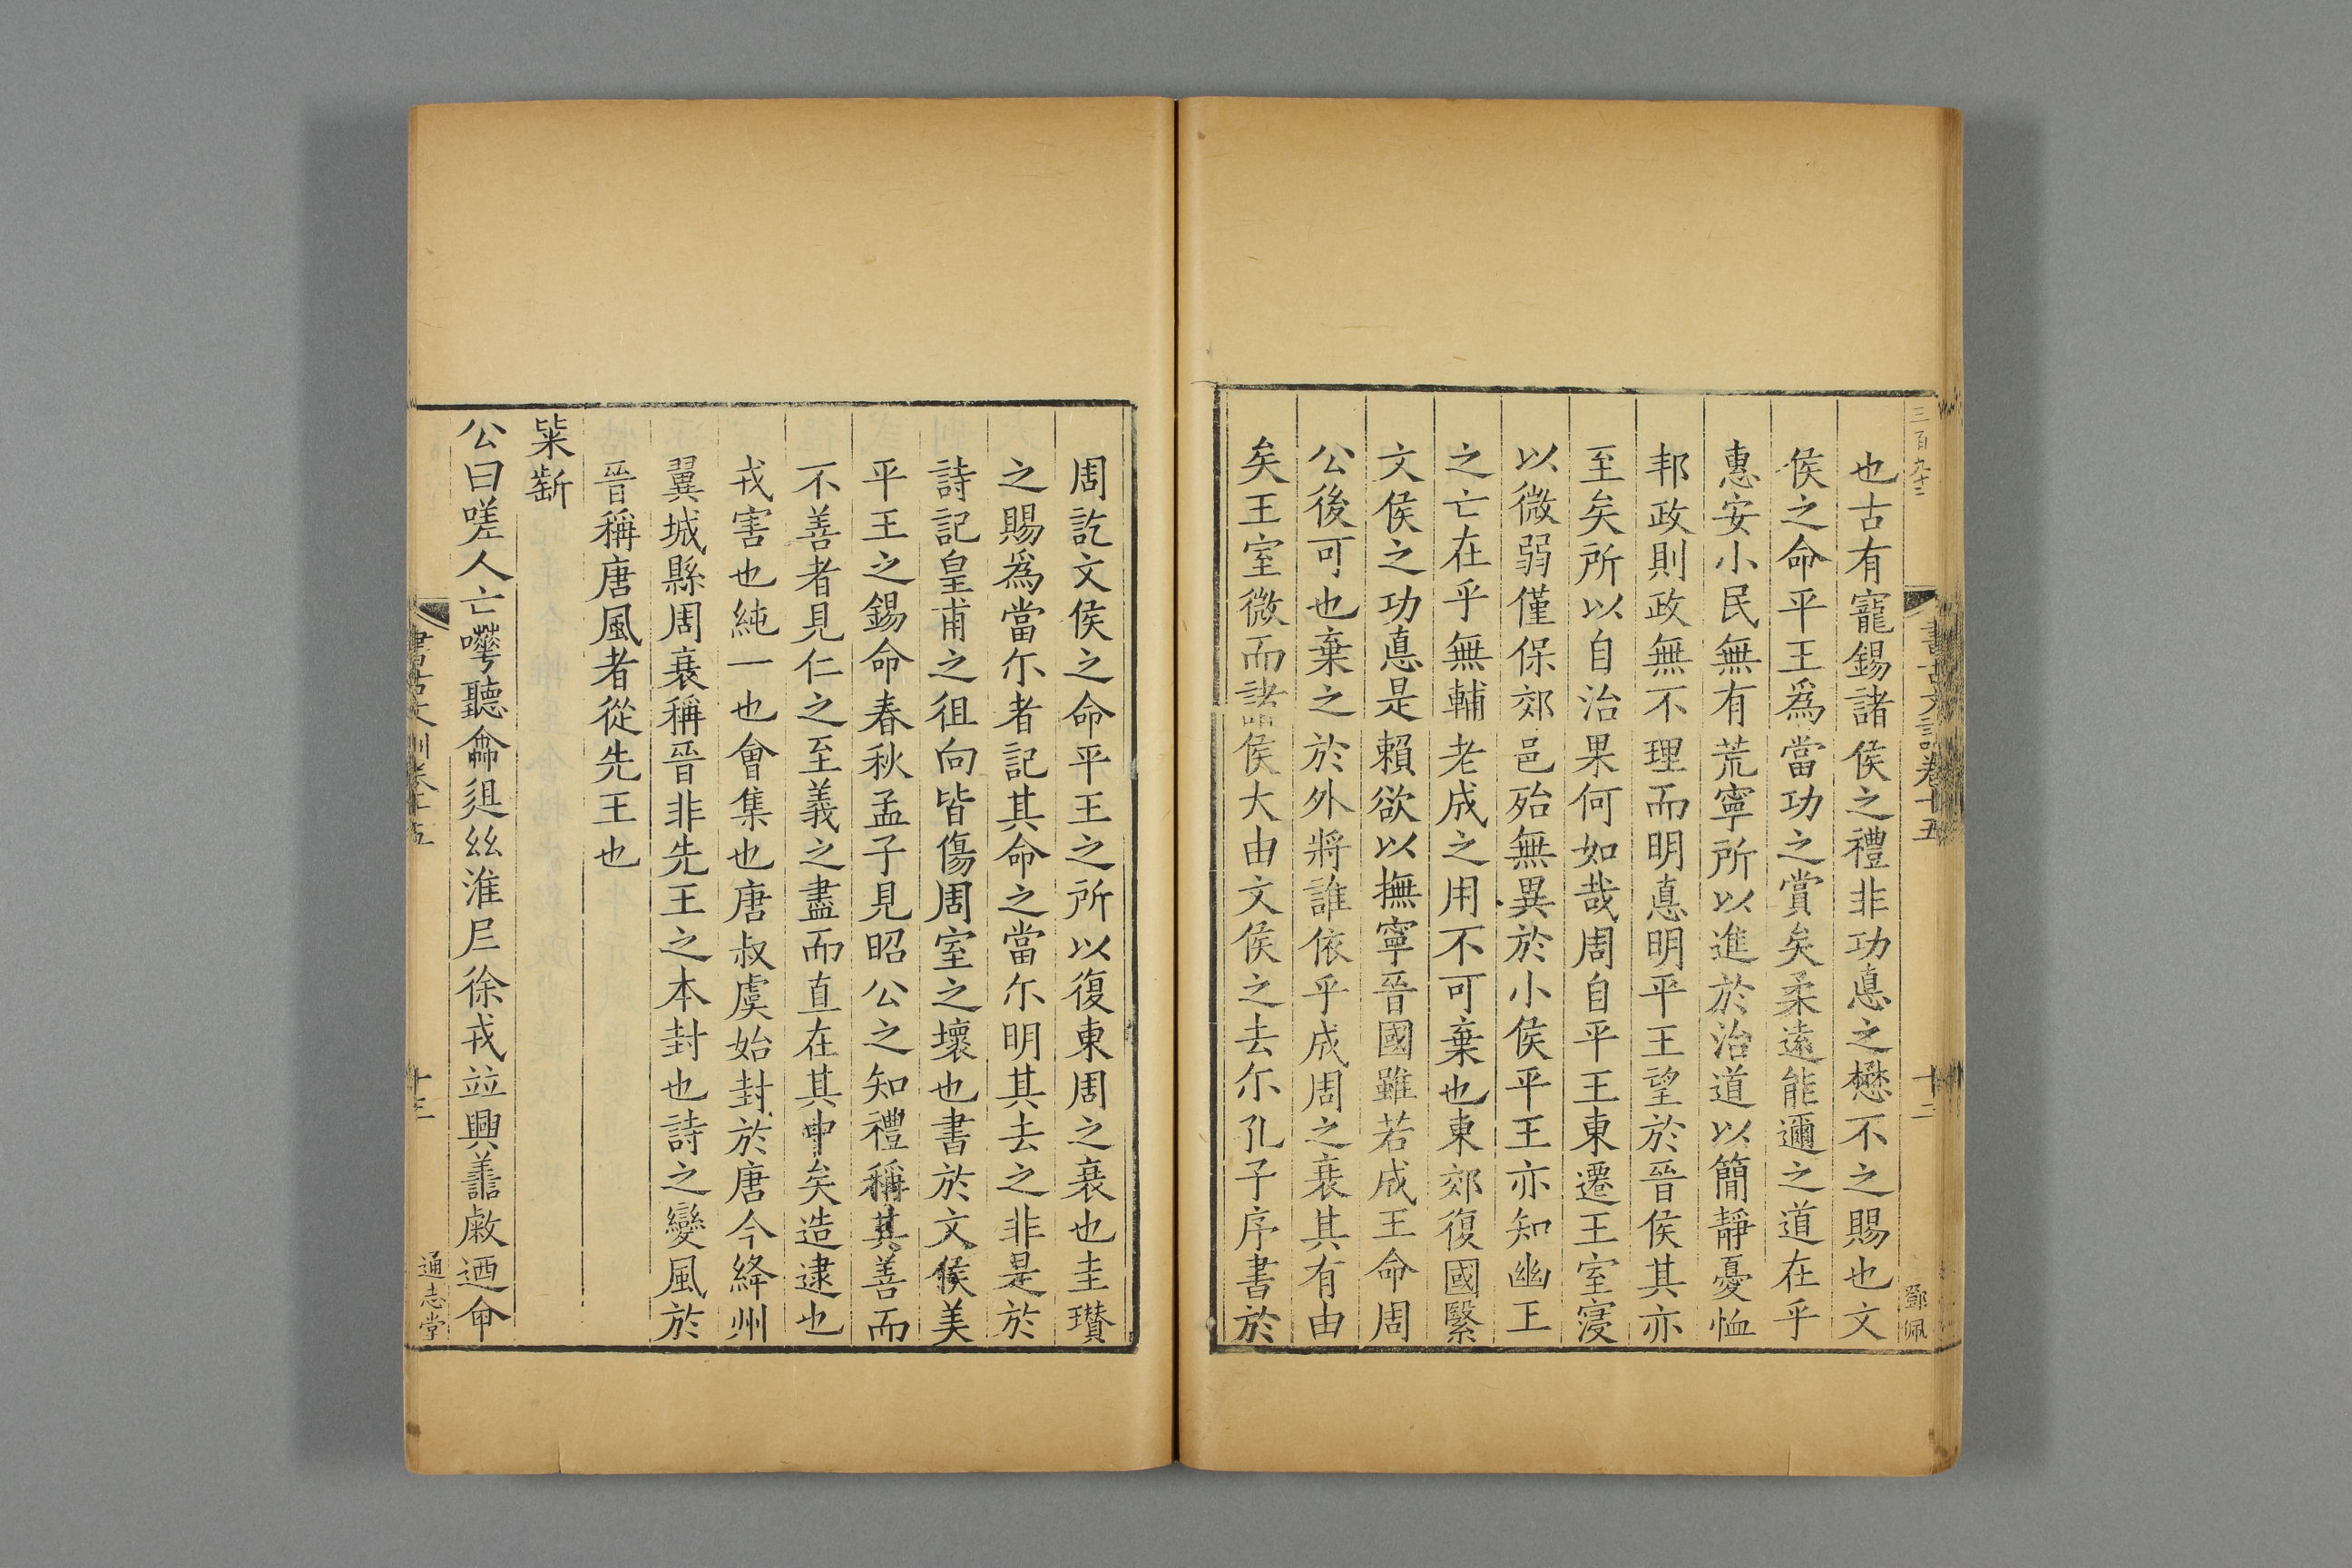 三百九十二
書古文訓卷十五
十二
鄧佩
也古有寵錫諸侯之禮非功悳之懋不之賜也文
侯之命平王爲當功之賞矣柔遠能邇之道在乎
惠安小民無有荒寧所以進於治道以簡靜憂恤
邦政則政無不理而明悳明平王望於晉侯其亦
至矣所以自治果何如哉周自平王東遷王室寖
以微弱僅保郊邑殆無異於小侯平王亦知幽王
之亡在乎無輔老成之用不可棄也東郊復國緊
文侯之功悳是賴欲以撫寧晉國雖若成王命周
公後可也棄之於外將誰依乎成周之衰其有由
矣王室微而諸侯大由文侯之去尓孔子序書於
周訖文侯之命平王之所以復東周之衰也圭瓚
之賜爲當尓者記其命之當尓明其去之非是於
詩記皇甫之徂向皆傷周室之壞也書於文侯美
平王之錫命春秋孟子見昭公之知禮稱其善而
不善者見仁之至義之盡而直在其中矣造逮也
戎害也純一也會集也唐叔虞始封於唐今絳州
翼城縣周衰稱晉非先王之本封也詩之變風於
晉稱唐風者從先王也
粊斱
公曰嗟人亡嘩聽龠徂丝淮𡰥徐戎竝興譱敹迺命
書古文訓卷十五
十三
通志堂